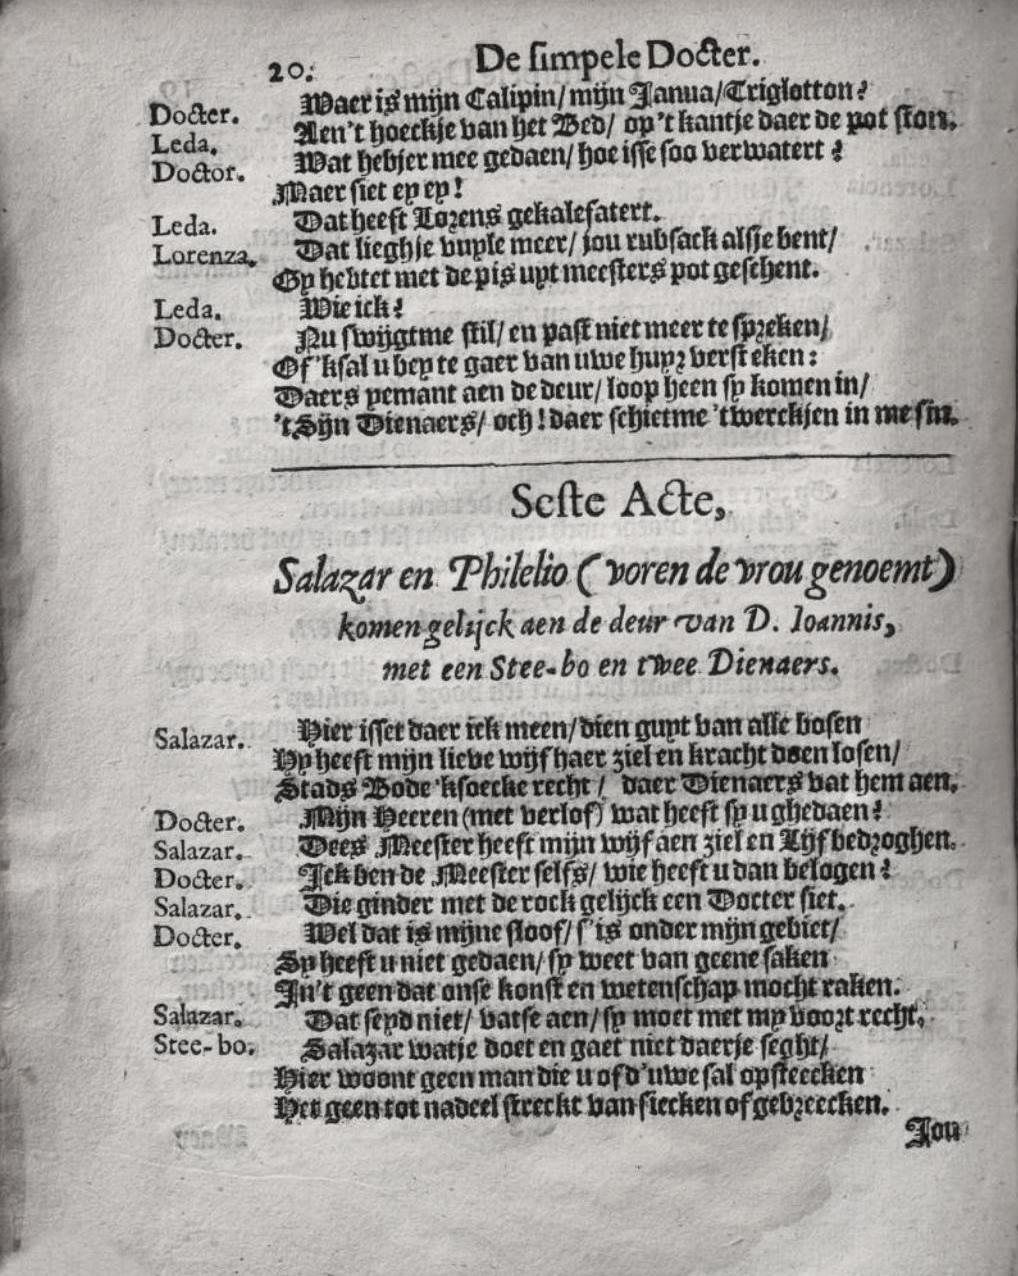 20. De simpele Docter.
Docter. Waer is mijn Calipin/ mijn Janua/ Triglotton?
Leda. Aen't hoeckje van het Bed/ op 't kantje daer de pot ston.
Doctor. Wat hebjer mee gedaen/ hoe isse soo verwatert?
Maer siet ey ey!
Leda. Dat heeft Lorens gekalefatert.
Lorenza. Dat lieghje vuyle meer/ jou rubsack alsje bent/
Gy hebtet met de pis uyt meesters pot geschent.
Leda. Wie ick?
Docter. Nu swijgtme stil/ en past niet meer te spreken/
Of 'ksal u bey te gaer van uwe huyz versteken:
Daers yemant aen de deur/ loop heen sy komen in/
't Sijn Dienaers/ och! daer schietme 'twerckjen in me sin.
Seste Acte,
Salazar en Philelio (voren de vrou genoemt)
komen gelijck aen de deur van D. Ioannis,
met een Stee-bo en twee Dienaers.
Salazar. Hier isset daer ick meen/ dien guyt van alle bosen
Hy heeft mijn lieve wijf haer ziel en kracht doen losen/
Stads Bode 'ksoecke recht/ daer Dienaers vat hem aen.
Docter. Mijn Heeren (met verlof) wat heeft sy u ghedaen?
Salazar. Dees Meester heeft mijn wijf aen ziel en Lijf bedroghen.
Docter. Ick ben de Meester selfs/ wie heeft u dan belogen?
Salazar. Die ginder met de rock gelijck een Docter siet.
Docter. Wel dat is mijne sloof/ s'is onder mijn gebiet/
Sy heeft u niet gedaen/ sy weet van geene saken
In't geen dat onse konst en wetenschap mocht raken.
Salazar. Dat seyd niet/ vatse aen/ sy moet met my voort recht.
Stee-bo. Salazar watje doet en gaet niet daerje seght/
Hier woont geen man die u of d'uwe sal opsteecken
Het geen tot nadeel streckt van siecken of gebreecken.
Jou